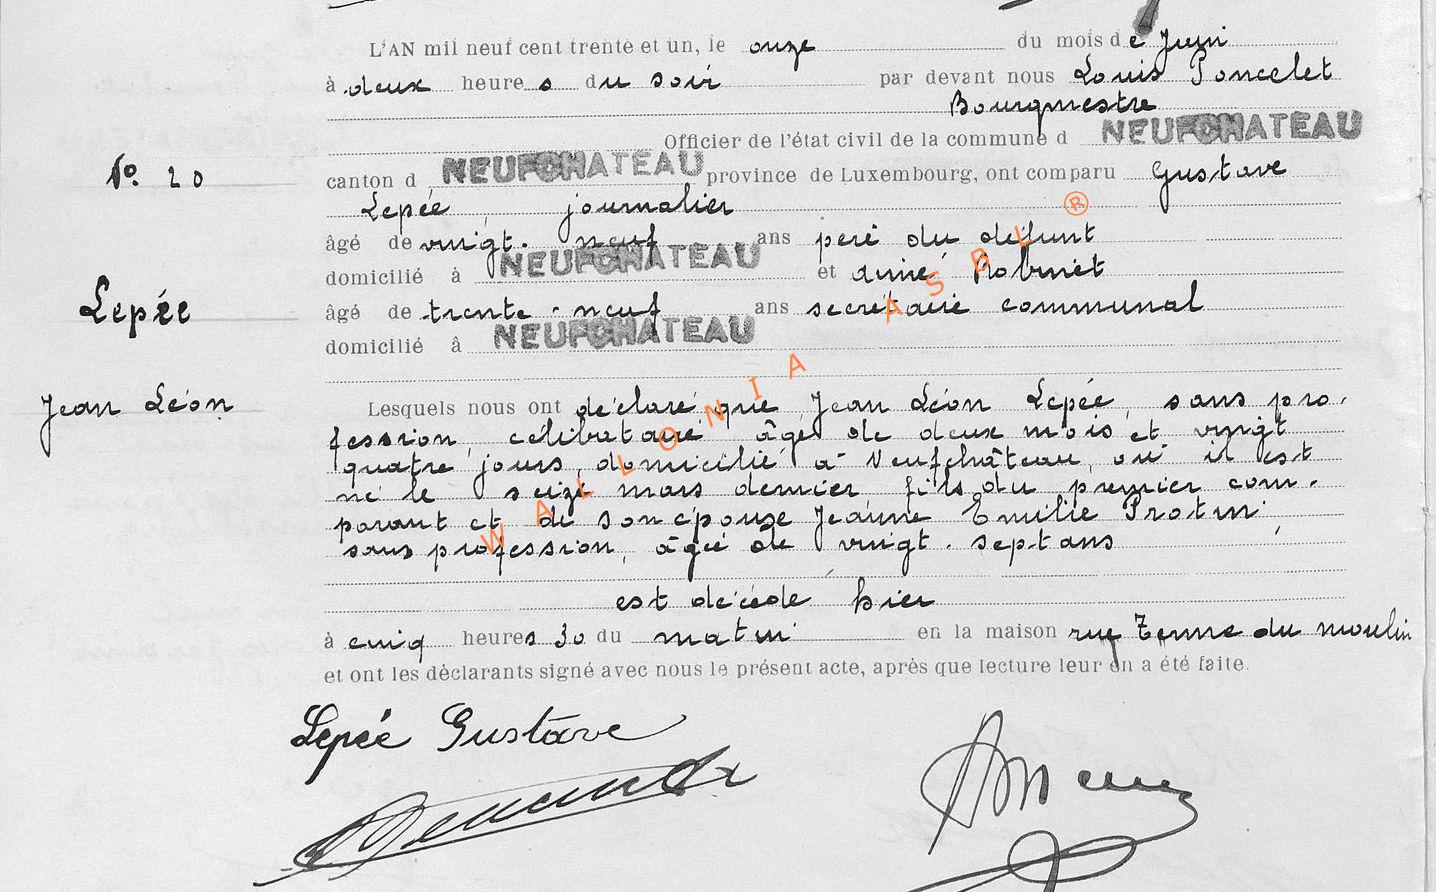 L'AN mil neuf cent trente et un, le onze du mois de Juin
à deux heures du soir par devant nous Louis Poncelet
Bourgmestre
Officier de l'état civil de la commune d NEUFCHATEAU
canton d NEUFCHATEAU province de Luxembourg, ont comparu Gustave
Lepée, journalier
âgé de vingt-neuf ans père du défunt
domicilié à NEUFCHATEAU et Aimé Robinet
âgé de trente-neuf ans secrétaire communal
domicilié â NEUFCHATEAU
Nº 20
Lepée
Jean Léon
Lesquels nous ont déclaré que Jean Léon Lepée, sans pro-
fession, célibataire âgé de deux mois et vingt
quatre jours, domicilié à Neufchâteau, où il est
né le seize mars dernier, fils du premier com-
parant et de son épouse Jeanne Emilie Protin,
sans profession, âgée de vingt-sept ans
est décédé hier
à cinq heures 30 du matin en la maison rue Tenne du moulin
et ont les déclarants signé avec nous le présent acte, après que lecture leur en a été faite.
Lepée Gustave
WALLONIA ASBL ®